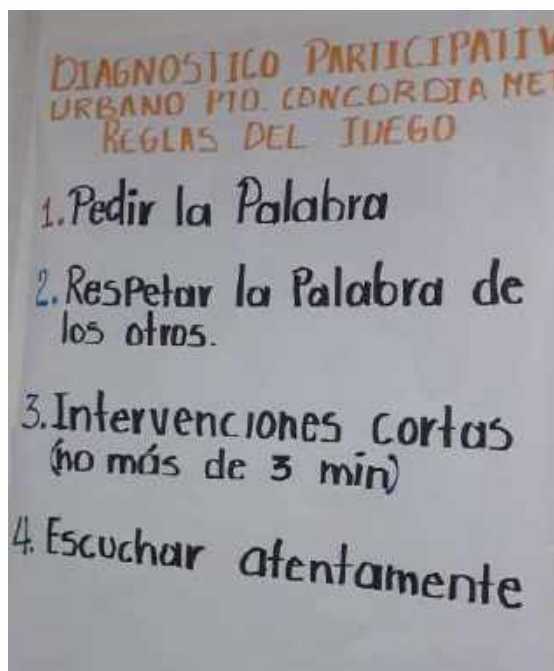 DIAGNOSTICO PARTICIPATIV
URBANO PTO. CONCORDIA MET
REGLAS DEL JUEGO
1. Pedir la Palabra
2. Respetar la Palabra de
los otros.
3. Intervenciones cortas
(no más de 3 min)
4. Escuchar atentamente